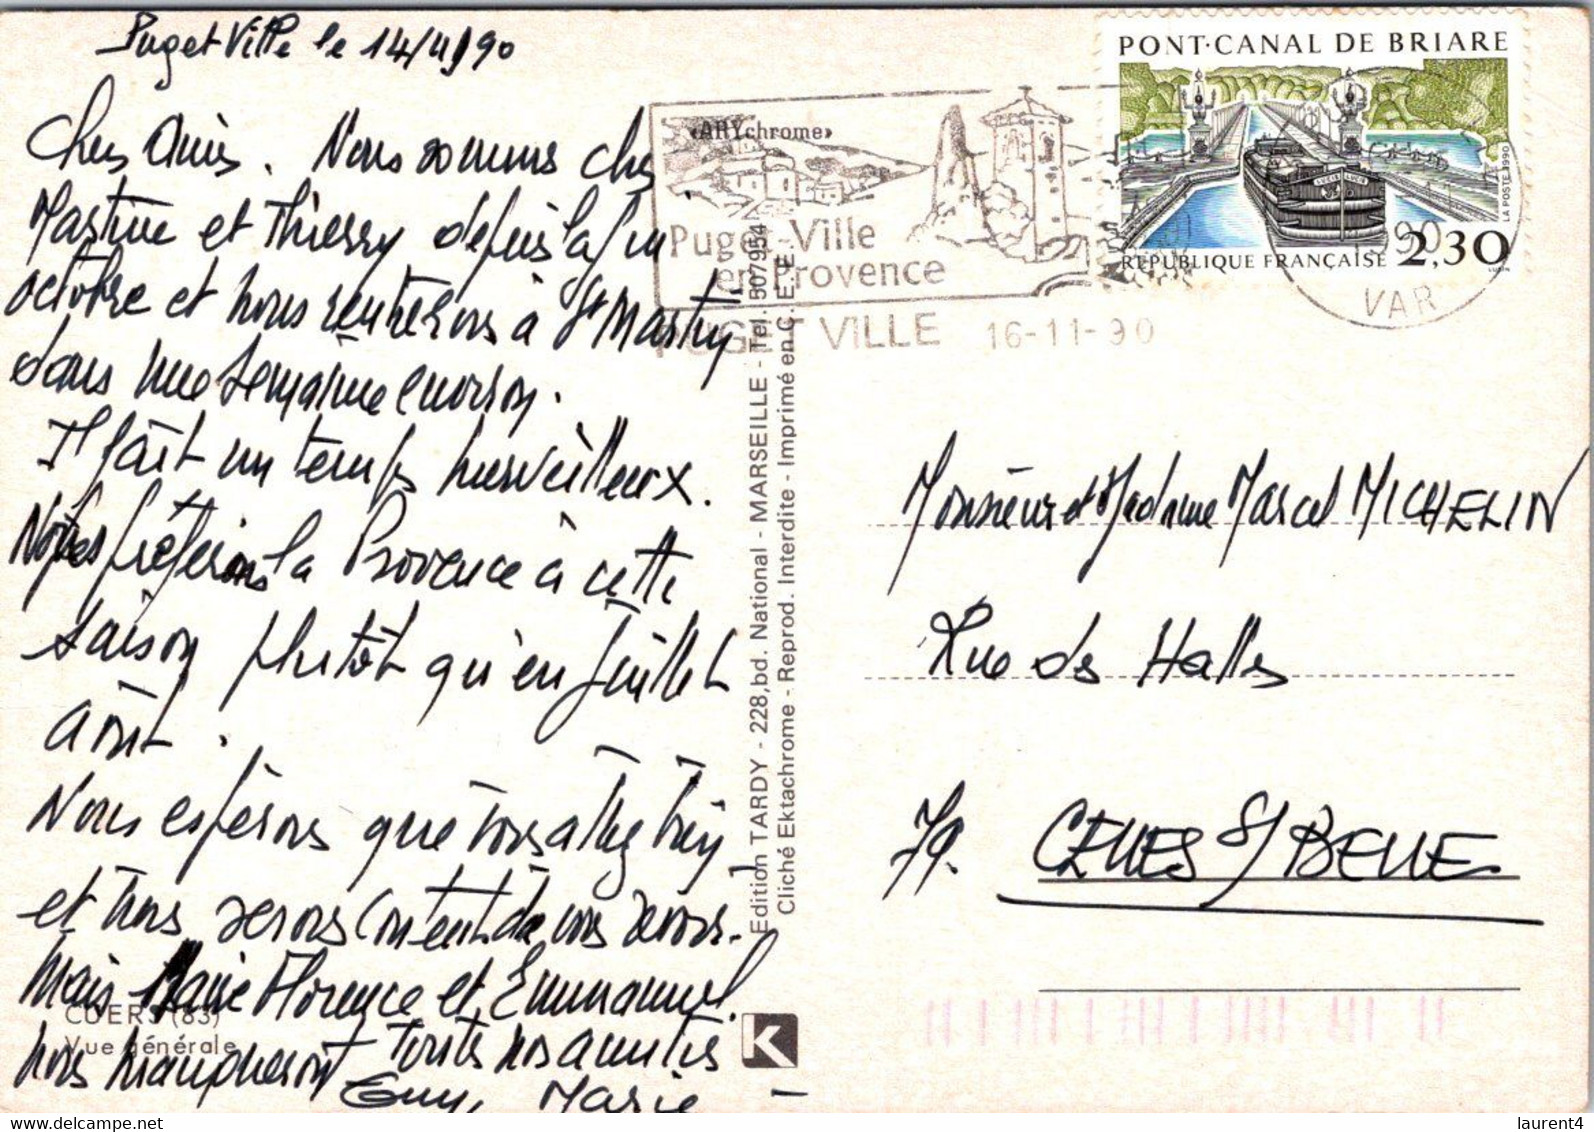 Puget Ville le 14/11/90
Chers Amis. Nous sommes chez
Martine et Thierry depuis la fin
octobre et nous rentrerons à St Martin
dans une semaine environ.
Il fait un temps merveilleux.
Nous préférons la Provence à cette
saison plutôt qu'en Juillet
août.
Nous espérons que vous allez bien
et nous serons content de vous revoir.
Mais Marie Florence et Emmanuel.
nous manqueront Toutes nos amitiés
Guy, Marie
CUERS (83)
Vue générale
Edition TARDY - 228, bd. National - MARSEILLE - Tel. 507954
Cliché Ektachrome - Reprod. Interdite - Imprimé en C.E.E.
K
«ARYchrome»
Puget Ville
en Provence
PUGET VILLE 16-11-90
PONT·CANAL DE BRIARE
LA POSTE 1990
RÉPUBLIQUE FRANÇAISE 2,30
90
VAR
Monsieur et Madame Marcel MICHELIN
Rue des Halles
79. CELLES S/ BELLE
delcampe.net
laurent4